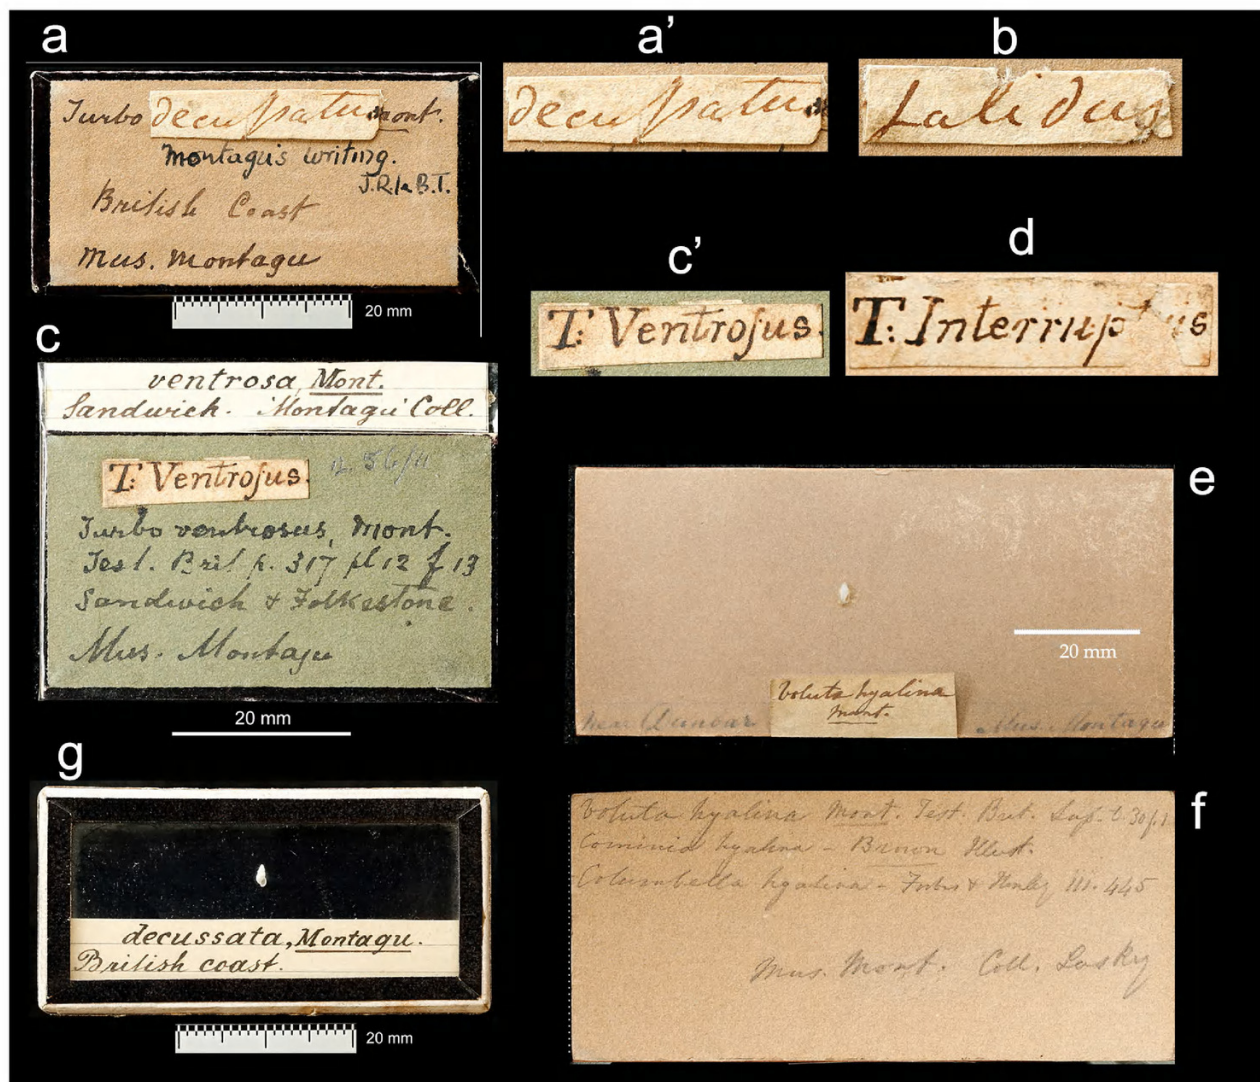 a
Turbo decussatus mont.
Montagu's writing.
J.R. le B.T.
British Coast
Mus. Montagu
20 mm
a’
decussatus
b
c’
T: Ventrosus.
d
T: Interruptus
c
ventrosa, Mont.
Sandwich. Montagu Coll.
T: Ventrosus.
Turbo ventrosus, Mont.
Test. Brit p. 317 pl 12 f 13
Sandwich & Folkestone.
Mus. Montagu
20 mm
e
20 mm
Voluta hyalina
Mont.
near Dunbar
Mus. Montagu
g
decussata, Montagu.
British coast.
20 mm
f
Voluta hyalina Mont. Test. Brit. Sup. t. 30 f. 1
Cominia hyalina - Brown Illust.
Columbella hyalina - Forbes & Hanley III. 445
Mus. Mont. Coll. Lasky